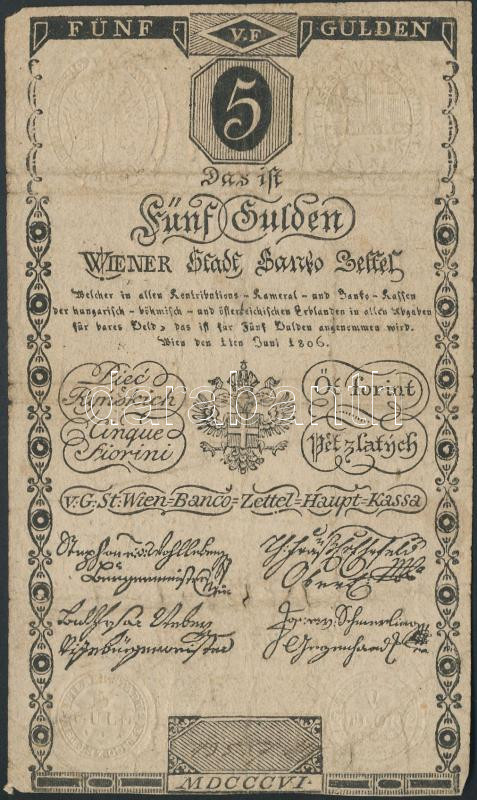 FÜNF V.F GULDEN
5
Das ist
Fünf Gulden
WIENER Stadt Banko Zettel
Welcher in allen Kontributions - Kameral - und Banko - Kassen
der hungarisch - böhmisch - und österreichischen Erblanden in allen Abgaben
für bares Geld, das ist für Fünf Gulden angenommen wird.
Wien den 1ten Juni 1806.
Pięć
Ryński̇ch
Cinque
Fiorini
Öt forint
Pět zlatých
darabanth
V:G:St:Wien=Banco=Zettel=Haupt=Kassa
Stephan
Bürgermeister
MDCCCVI